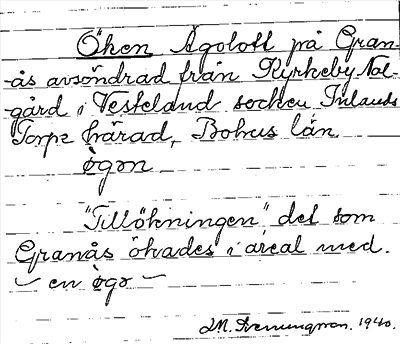 Öken Ägolott på Gran-
ås avsöndrad från Kyrkeby Nol-
gård i Vesteland socken Inlands
Torpe härad, Bohus län
øgən
"Tillökningen" det som
Granås ökades i areal med.
— en øgə —
1940.